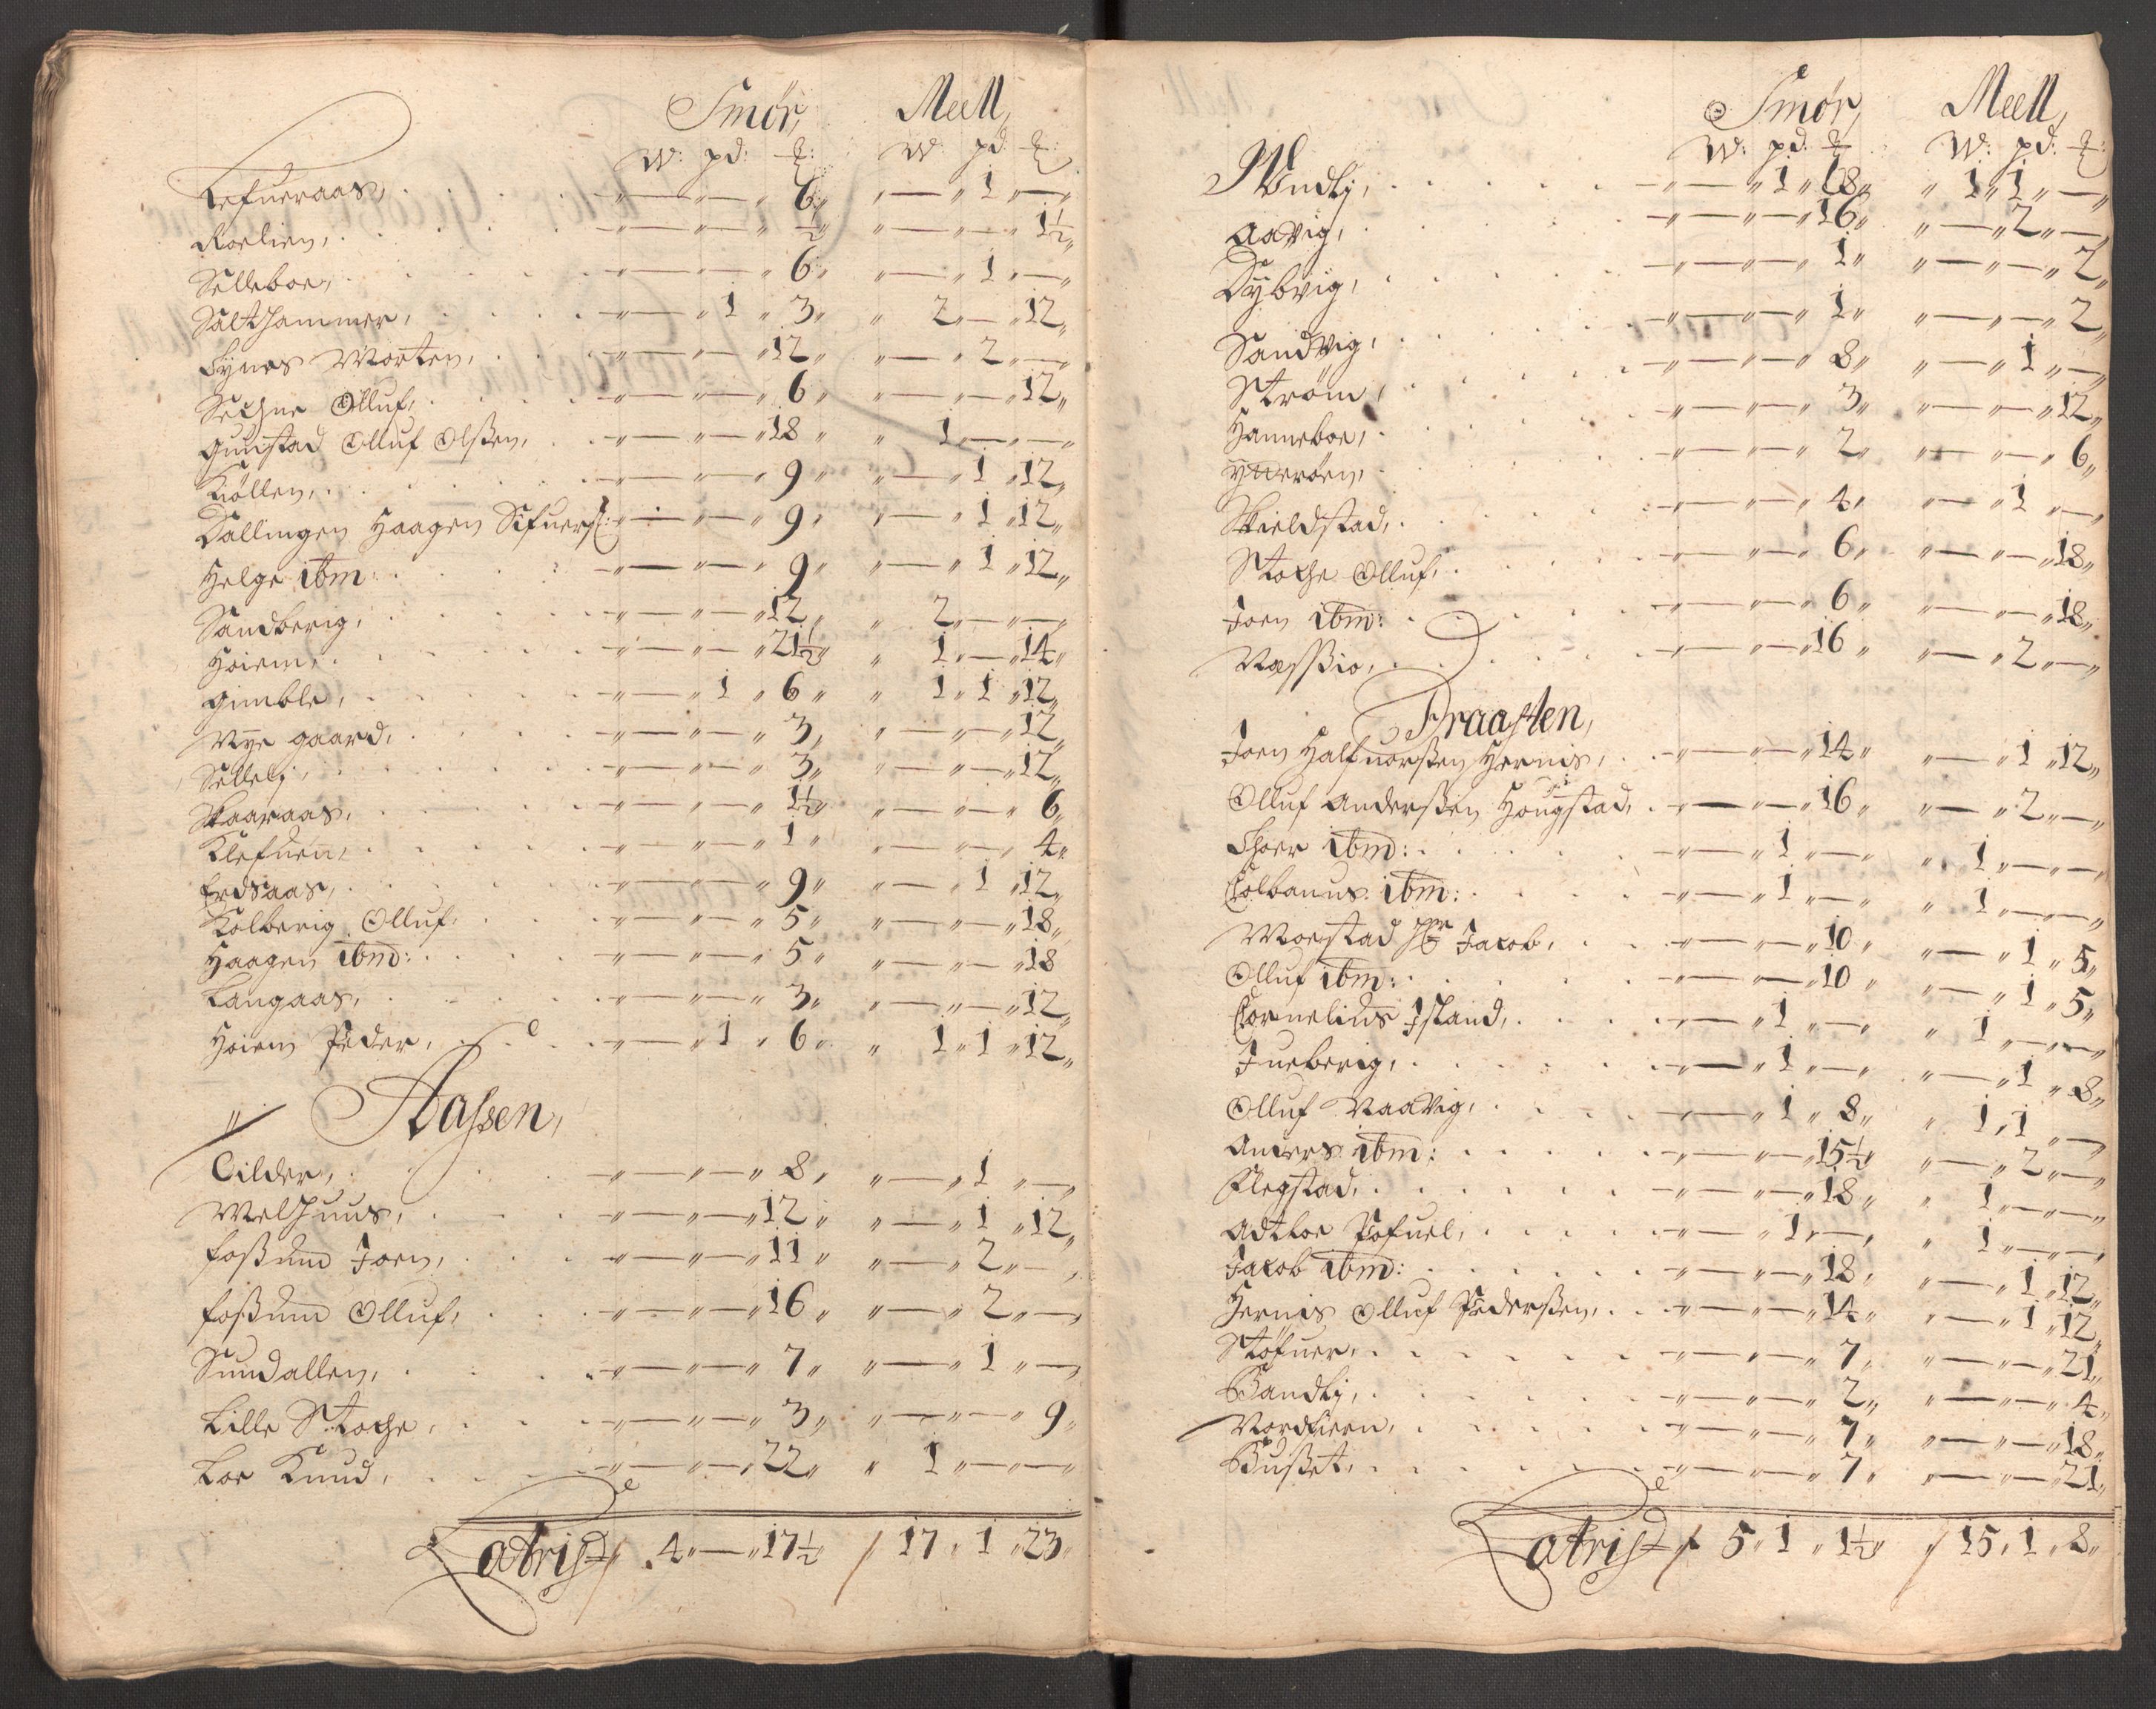 Smør, Meell,
W: pd: ℔: W: pd: ℔:
Lefueraas, „ — „ — „ 6 „ „ — „ 1 „ — „
Roelien, „ — „ — „ ½ „ „ — „ — „ 1½ „
Selleboe, „ — „ — „ 6 „ „ — „ 1 „ — „
Salthammer, „ — „ 1 „ 3 „ „ 2 „ — „ 12 „
Fynes Morten, „ — „ — „ 12 „ „ — „ 2 „ — „
Sechne Olluf, „ — „ — „ 6 „ „ — „ — „ 12 „
Gunstad Olluf Olsßen, „ — „ — „ 18 „ „ 1 „ — „ — „
Kiøllen, „ — „ — „ 9 „ „ — „ 1 „ 12 „
Dallingen Haagen Sifuers: „ — „ — „ 9 „ „ — „ 1 „ 12 „
Helge ibm: „ — „ — „ 9 „ „ — „ 1 „ 12 „
Sandberig, „ — „ — „ 12 „ „ 2 „ — „ — „
Hoiem, „ — „ — „ 21½ „ „ 1 „ — „ 14 „
Gimble, „ — „ 1 „ 6 „ „ 1 „ 1 „ 12 „
Nye gaard, „ — „ — „ 3 „ „ — „ — „ 12 „
Sellelj, „ — „ — „ 3 „ „ — „ — „ 12 „
Skaaraas, „ — „ — „ 1½ „ „ — „ — „ 6 „
Klefuen, „ — „ — „ 1 „ „ — „ — „ 4 „
Erdsaas, „ — „ — „ 9 „ „ — „ 1 „ 12 „
Kolberig Olluf, „ — „ — „ 5 „ „ — „ — „ 18 „
Haagen ibm: „ — „ — „ 5 „ „ — „ — „ 18
Langaas, „ — „ — „ 3 „ „ — „ — „ 12 „
Hoiem Peder, „ — „ 1 „ 6 „ „ 1 „ 1 „ 12 „
Aasen,
Eilder, „ — „ — „ 8 „ „ — „ 1 „ — „
Welhuus, „ — „ — „ 12 „ „ — „ 1 „ 12 „
Foßum Joen, „ — „ — „ 11 „ „ — „ 2 „ — „
Foßum Olluf, „ — „ — „ 16 „ „ — „ 2 „ — „
Sundallen, „ — „ — „ 7 „ „ — „ 1 „ — „
Lille Stoche, „ — „ — „ 3 „ „ — „ — „ 9 „
Loe Knud, „ — „ — „ 22 „ „ 1 „ — „ — „
Latris / 4 „ — „ 17½ „ / 17 „ 1 „ 23 „
Smør, Meell,
W: pd: ℔ W: pd: ℔:
Wndlj, „ — „ 1 „ 18 „ „ 1 „ 1 „ — „
Aavig, „ — „ — „ 16 „ „ — „ 2 „ — „
Dybvig, „ — „ — „ 1 „ „ — „ — „ 2 „
Sandvig, „ — „ — „ 1 „ „ — „ — „ 2 „
Strøm, „ — „ — „ 8 „ „ — „ 1 „ — „
Hanneboe, „ — „ — „ 3 „ „ — „ — „ 12 „
Ytterøen, „ — „ — „ 2 „ „ — „ — „ 6 „
Skieldstad, „ — „ — „ 4 „ „ — „ 1 „ — „
Stoche Olluf, „ — „ — „ 6 „ „ — „ — „ 18 „
Joen ibm: „ — „ — „ 6 „ „ — „ — „ 18 „
Næssßio, „ — „ — „ 16 „ „ — „ 2 „ — „
Praasten,
Joen Halfuorsßen Hernis, „ — „ — „ 14 „ „ — „ 1 „ 12 „
Olluf Andersßen Hougstad, „ — „ — „ 16 „ „ — „ 2 „ — „
Thoer ibm: „ — „ 1 „ — „ „ 1 „ — „ — „
Colbanus ibm: „ — „ 1 „ — „ „ 1 „ — „ — „
Moestad hr Jacob, „ — „ — „ 10 „ „ — „ 1 „ 5 „
Olluf ibm: „ — „ — „ 10 „ „ — „ 1 „ 5 „
Cornelius Istand, „ — „ 1 „ — „ „ 1 „ — „ — „
Jueberig, „ — „ 1 „ — „ „ — „ 1 „ 8 „
Olluf Naavig, „ — „ 1 „ 8 „ „ 1 „ 1 „ — „
Anders ibm: „ — „ — „ 15½ „ „ — „ 2 „ — „
Flegstad, „ — „ — „ 18 „ „ 1 „ — „ — „
Adtloe Pofuel, „ — „ 1 „ — „ „ 1 „ — „ — „
Jacob ibm: „ — „ — „ 18 „ „ — „ 1 „ 12 „
Hernis Olluf Pedersßen, „ — „ — „ 14 „ „ — „ 1 „ 12 „
Støfuer, „ — „ — „ 7 „ „ — „ — „ 21 „
Bandlj, „ — „ — „ 2 „ „ — „ — „ 4 „
Nordtiern, „ — „ — „ 7 „ „ — „ — „ 18 „
Bußet, „ — „ — „ 7 „ „ — „ — „ 21 „
Latris / 5 „ 1 „ 1½ „ / 15 „ 1 „ 8 „